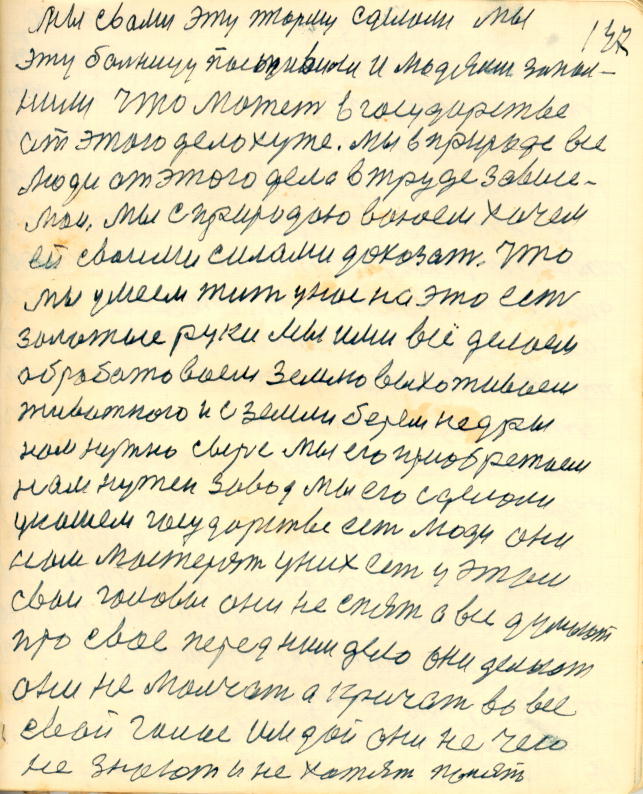 137
Мы свами эту тюрму сделали мы
эту болницу постривали и людями запол-
нили Что может в государстве
от этого дело хуже. мы в природе все
люди от этого дела в труде завис-
мои. мы с природою воюем хочем
ей своими силами доказат. Что
мы умеем жит унас на это ест
золотые руки мы ими всё делаем
обработоваем землю выхотиваем
животного и с земли берем недры
нам нужно сыре мы его приобретаем
нам нужен завод мы его сделали
унашем государстве ест люди они
нам мастерят уних ест у этои
свои головы они не спят а все думают
про свое перед ними дело они делают
они не молчат а кричат во все
свой голос им дай они не чего
не знают и не хотят понят